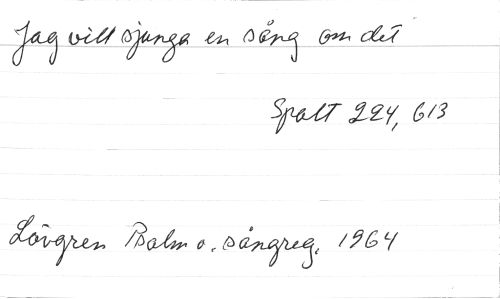 Jag vill sjunga en sång om det
Spalt 224, 613
Lövgren Psalm o. sångreg. 1964